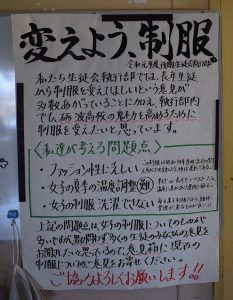 変えよう、制服。
令和元年度 後期生徒会執行部
私たち生徒会執行部では、長年生徒
から制服を変えてほしいという意見が
多数あがっていることに加え、執行部内
でも、砺波高校の魅力を高めるために
制服を変えたいと思っています。
〈私達が考える問題点〉
・ファッション性にえしい
・女子の夏の温度調整 難
・女子の制服 洗濯できない
上記の問題点は、女子の制服についてのものが
多いですが、男女問わず多くの生徒のみなさんの意見を
お聞きしたいと思っているので、意見箱に現在の
制服についてのご意見をお寄せください。
ご協力よろしくお願いします!!